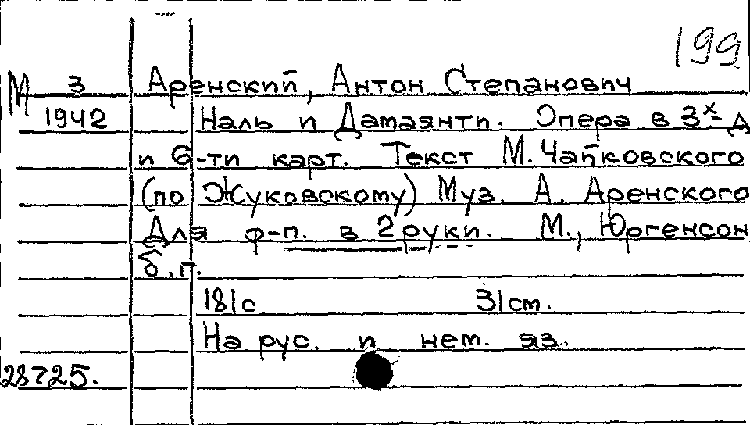 199
М 3 Аренский, Антон Степанович
1942 Наль и Дамаянти. Опера в 3х-д
и 6-ти карт. Текст М. Чайковского
(по Жуковскому) Муз. А. Аренского
Для ф-п. в 2 руки. М., Юргенсон
б.г.
181с 31см.
На рус. и нем. яз.
28725.